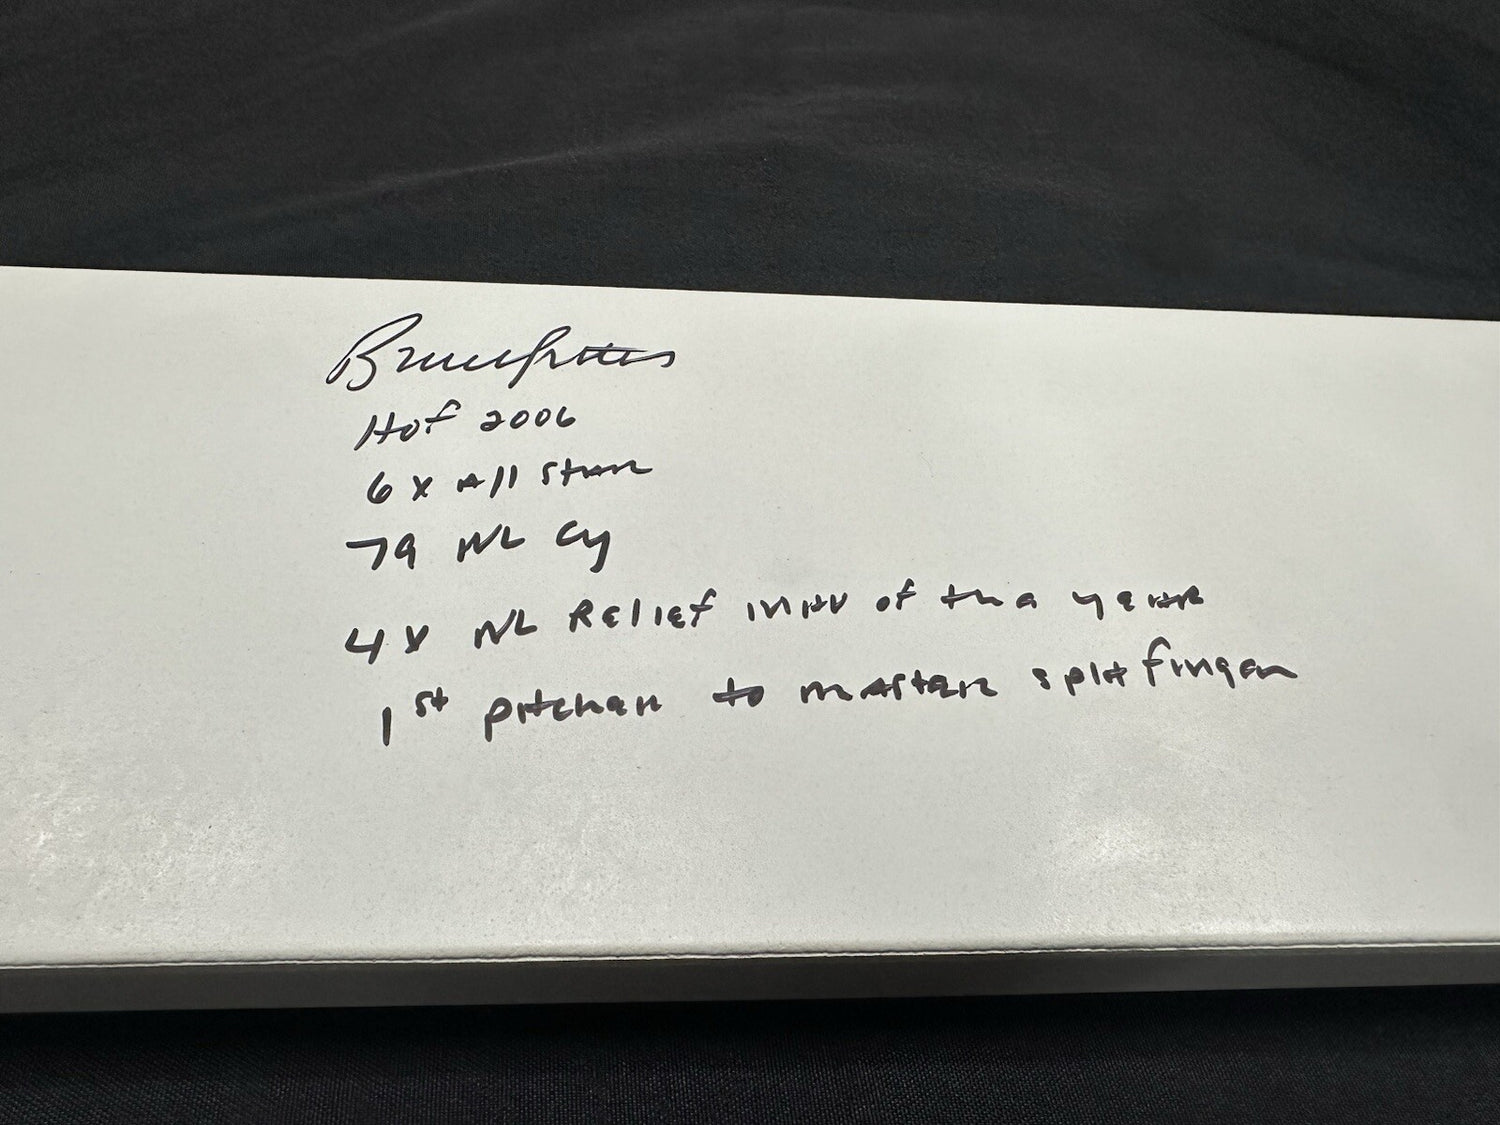 Bruce Sutter
HOF 2006
6x All Star
79 NL Cy
4x NL Relief man of the year
1st pitcher to master split finger